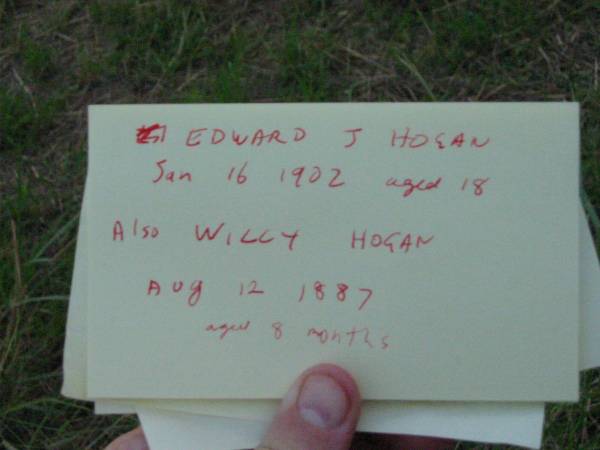 EDWARD J HOGAN
Jan 16 1902 aged 18
Also WILLY HOGAN
AUg 12 1887
aged 8 months